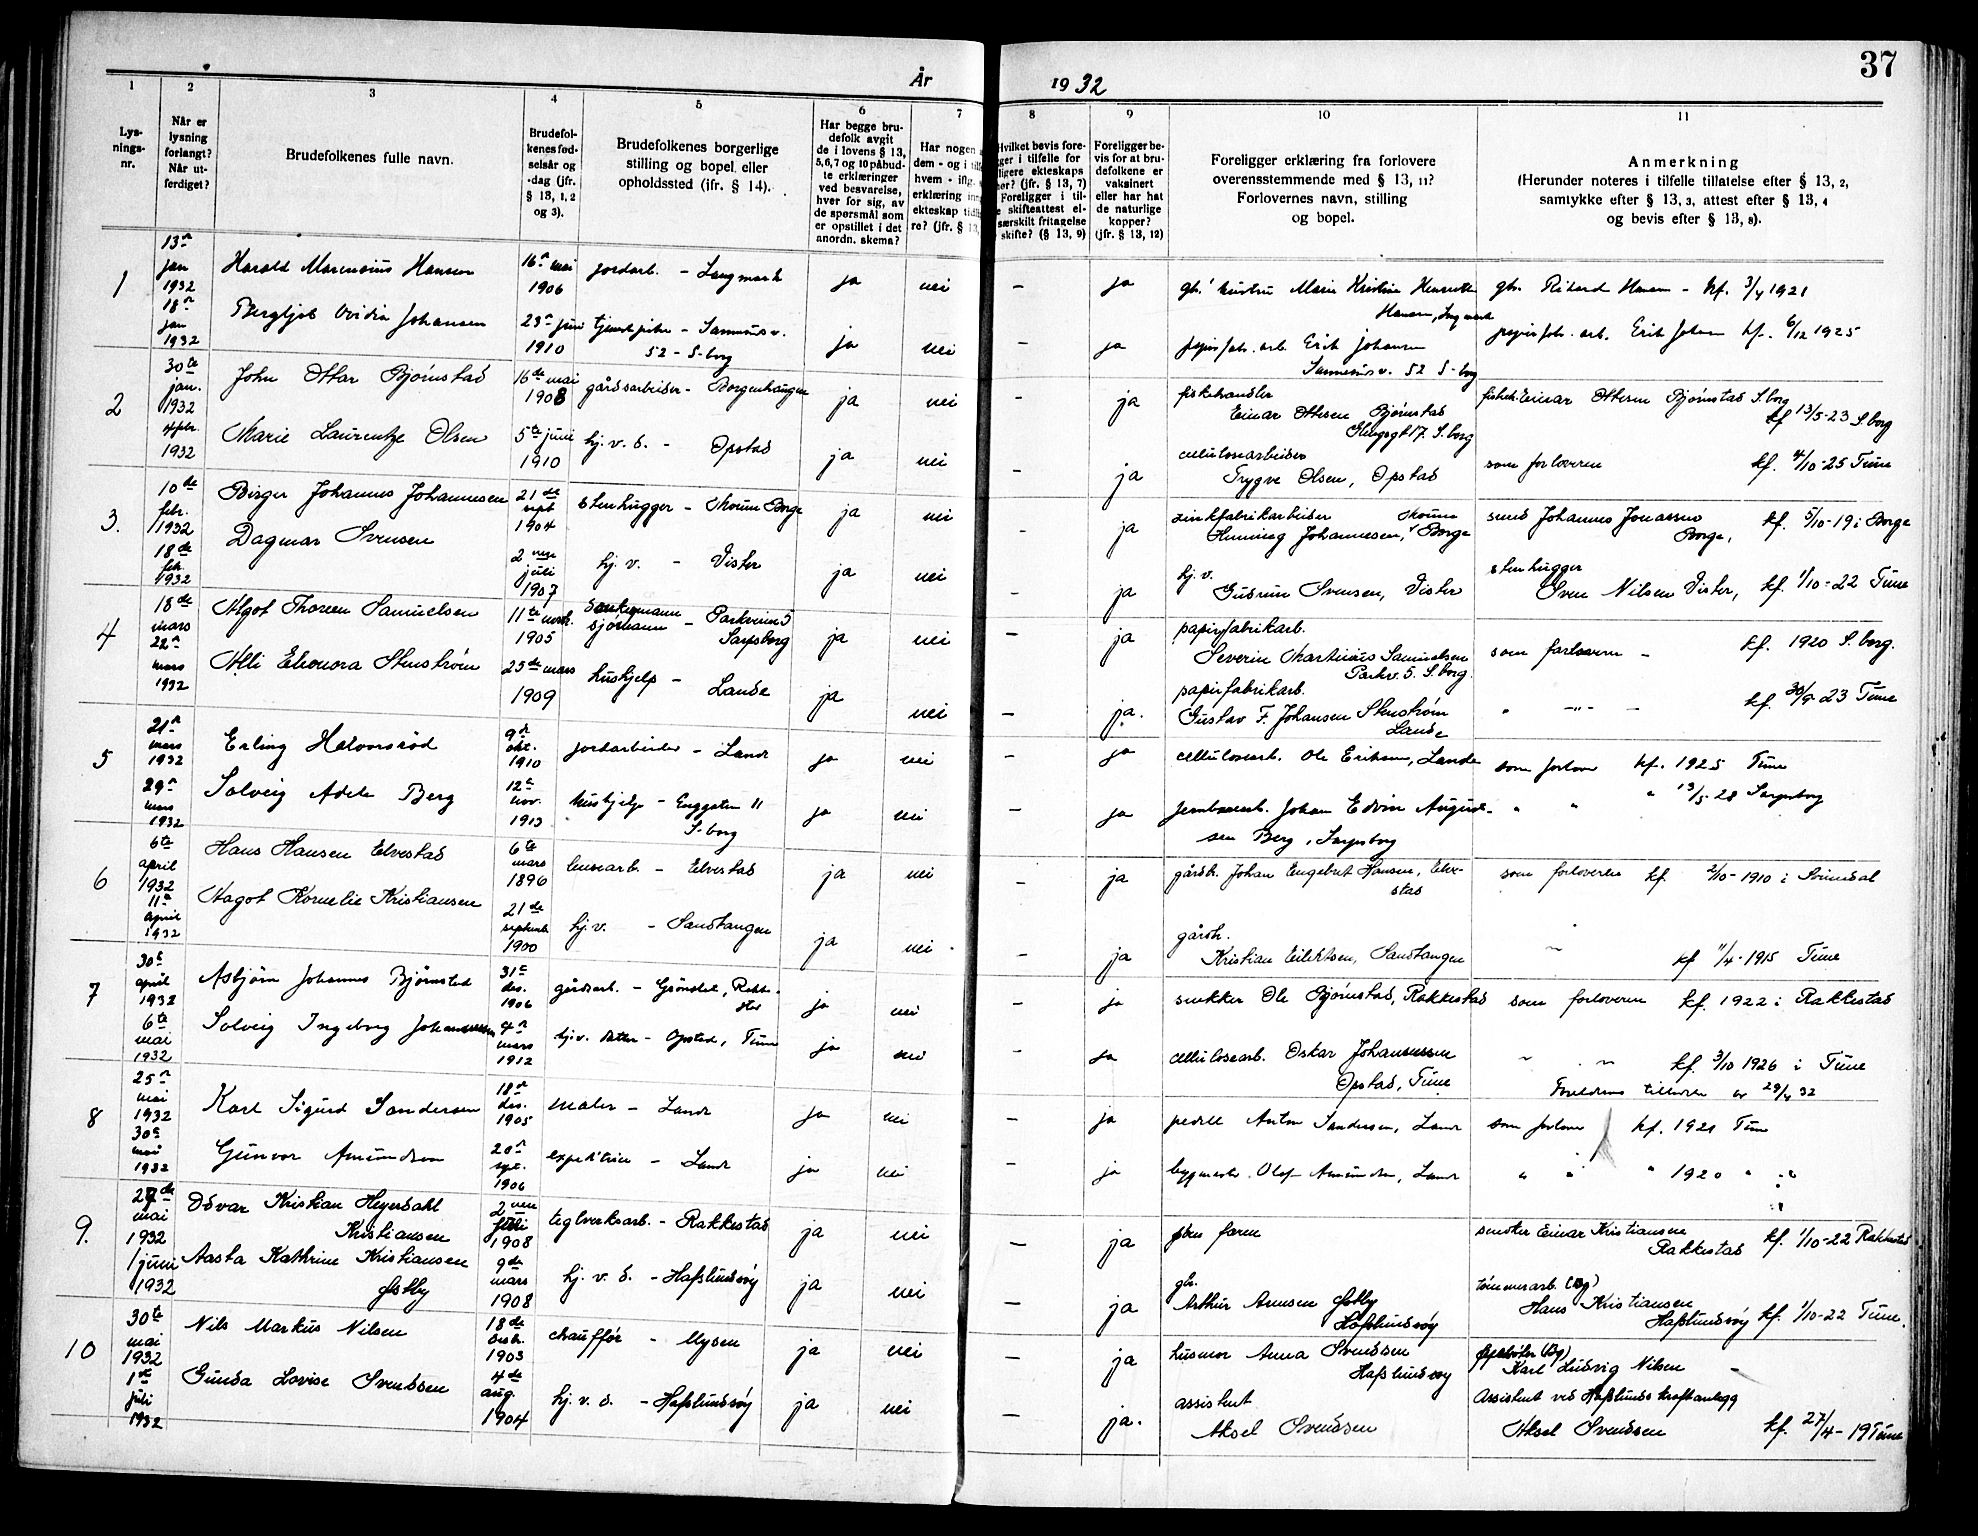 37
År 1932
1 2 3 4 5 6 7 8 9 10 11
Lys-
nings-
nr.
Når er
lysning
forlangt?
Når ut-
ferdiget?
Brudefolkenes fulle navn.
Brudefol-
kenes fød-
selsår og
-dag (jfr.
§ 13, 1, 2
og 3).
Brudefolkenes borgerlige
stilling og bopel eller
opholdssted (jfr. § 14).
Har begge bru-
defolk avgit
de i lovens § 13,
5, 6, 7 og 10 påbud-
te erklæringer
ved besvarelse,
hver for sig, av
de spørsmål som
er opstillet i det
anordn. skema?
Har nogen
dem - og i
hvem - iflg.
erklæring
ekteskap
re? (jfr. § 13,
Hvilket bevis fore-
ger i tilfelle for
ligere ekteskaps
hør? (jfr. § 13, 7)
Foreligger i til-
e skifteattest el-
særskilt fritagelse
skifte? (§ 13, 9)
Foreligger be-
vis for at bru-
defolkene er
vaksinert
eller har hat
de naturlige
kopper?
(jfr. § 13, 12)
Foreligger erklæring fra forlovere
overensstemmende med § 13, 11?
Forlovernes navn, stilling
og bopel.
Anmerkning
(Herunder noteres i tilfelle tillatelse efter § 13, 2,
samtykke efter § 13, 3, attest efter § 13, 4
og bevis efter § 13, 8).
1
13n jan 1932
Harald Marensius Hansen
16n mai 1906
jordarb. - Langmark
ja nei - ja
gb. hustru Marie Kristine Henriette
Hansen,
gbr. Rikard Hansen - kf. 3/4 1921
18n jan 1932
Bergljot Ovidia Johansen
23n juni 1910
tjenestpike - Sannesv.
52 - S-borg
ja nei - ja
papirfabr. arb. Erik Johansen
Sannesv. 52 S-borg
papirfabr. arb. Erik Johansen kf. 6/12 1925
2
30te jan. 1932
John Ottar Bjørnstad
16de mai 1908
gårdsarbeider - Borgenhaugen
ja nei - ja
fiskehandler
Einar Ottesen Bjørnstad
Glengsgt 17. S.borg
fiskeh. Einar Ottesen Bjørnstad S.borg
kf 13/5-23 S.borg
4 febr. 1932
Marie Laurentze Olsen
5te juni 1910
hj. v. d. - Opstad
ja nei - ja
cellulosearbeider
Trygve Olsen, Opstad
som forloveren kf. 4/10-25 Tune
3.
10de febr. 1932
Birger Johannes Johannesen
21de sept 1904
stenhugger - Moum Borge
ja nei - ja
zinkfabrikarbeider Moum
Henning Johannesen, Borge
smed Johannes Jonassen
Borge, kf. 5/10-19 i Borge
18de feb. 1932
Dagmar Svensen
2nen juli 1907
hj. v. - Vister
ja nei ja
hj. v.
Gudrun Svensen, Vister
stenhugger
Sven Nilsen Vister, kf. 1/10-22 Tune
4
18de mars
Algot Thoreen Samuelsen
11te mars. 1905
sjømann - Parkveien 5
Sarpsborg
ja nei - ja
papirfabrikarb.
Severin Martinius Samuelsen
Parkv. 5. S.borg.
som forloveren - kf. 1920 S.borg.
22n mars 1932
Alli Eleonora Stenstrøm
25de mars 1909
hushjelp - Lande
ja nei - ja.
papirfabrikarb.
Gustav F. Johansen Stenstrøm
Lande
" -"- - kf. 30/9 23 Tune
5
21n mars 1932
Erling Halvorsrød
9n okt. 1910
jordarbeider - Lande
ja nei - ja
cellulosearb. Ole Eriksen, Lande
som forlover kf. 1925 Tune
29n mars 1932
Solveig Adele Berg
12te nov. 1913
hushjelp - Enggaten 11
S-borg
ja nei - ja
jernbanearb. Johan Edvin August-
sen Berg, Sarpsborg
" " " 13/5 28 Sarpsborg
6
6te april 1932
Hans Hansen Elvestad
6te mars 1896
lensearb. - Elvestad
ja nei - ja
gårdbr. Johan Engebret Hansen, Elve-
stad
som forloveren kf 2/10-1910 i Svinndal
11n april 1932
Magot Kornelie Kristiansen
21de september 1900
hj. v. - Sandtangen
ja nei - ja
gårdbr.
Kristian Eilertsen, Sandtangen
kf 11/4-1915 Tune
7
30n april 1932
Asbjørn Johannes Bjørnstad
31te des. 1906
gårdsarb. - Grønsdal, Rakke-
stad
ja nei - ja
snekker Ole Bjørnstad, Rakkestad
som forloveren kf. 1922 i Rakkestad
6te mai 1932
Solveig Ingeborg Johannessen
4n mars 1912
hj. v. datter - Opstad, Tune
ja nei - ja
cellulosearb. Oskar Johannessen
Opstad, Tune
" " kf. 3/10 1926 i Tune
Foreldrenes tillatelse av 29/4 32
8
25n mai 1932
Karl Sigurd Sandersen
18n des. 1905
maler - Lande
ja nei - ja
pedell Anton Sandersen, Lande
som forlover kf. 1921 Tune
30n mai 1932
Gunvor Amundsen
20n spt. 1906
expeditrise - Lande
ja nei - ja
byggmester. Olof Amundsen, Lande
" " " 1920 " "
9.
27de mai 1932
Odvar Kristian Heyerdahl
Kristiansen
2nen juli 1908
teglverksarb. - Rakkestad
ja nei - ja
faren
smører Einar Kristiansen
Rakkestad kf. 1/10-22 Rakkestad
1 juni 1932
Aasta Kathrine Kristiansen
Østby
9de mars 1908
hj. v. d. - Hafslundsøy
ja nei - ja
gbr.
Arthur Arnesen Østby
Hafslundsøy
tømmerarb. (Dg)
Hans Kristiansen
Hafslundsøy kf. 1/10-22 Tune.
10
30te mai 1932
Nils Markus Nilsen
18de 1903
chauffør - Mysen
ja nei - ja
husmor Anna Svendsen
Hafslundsøy
Karl Ludvig Nilsen -
1ste juli 1932
Gunda Lovise Svendsen
4de aug. 1904
hj. v. d. - Hafslundsøy
ja nei - ja.
assistent
Aksel Svendsen
Assistent ved Hafslunds kraftanlegg
Aksel Svendsen kf. 27/4-19 Tune